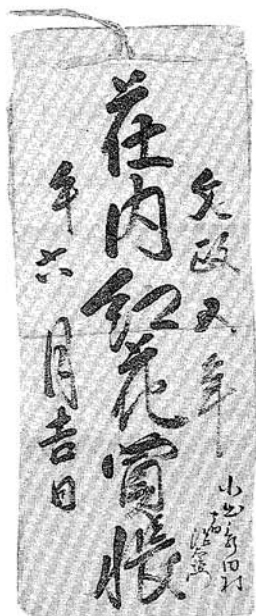 文政五年
荘内紅花買帳
午六月吉日
小出新田村